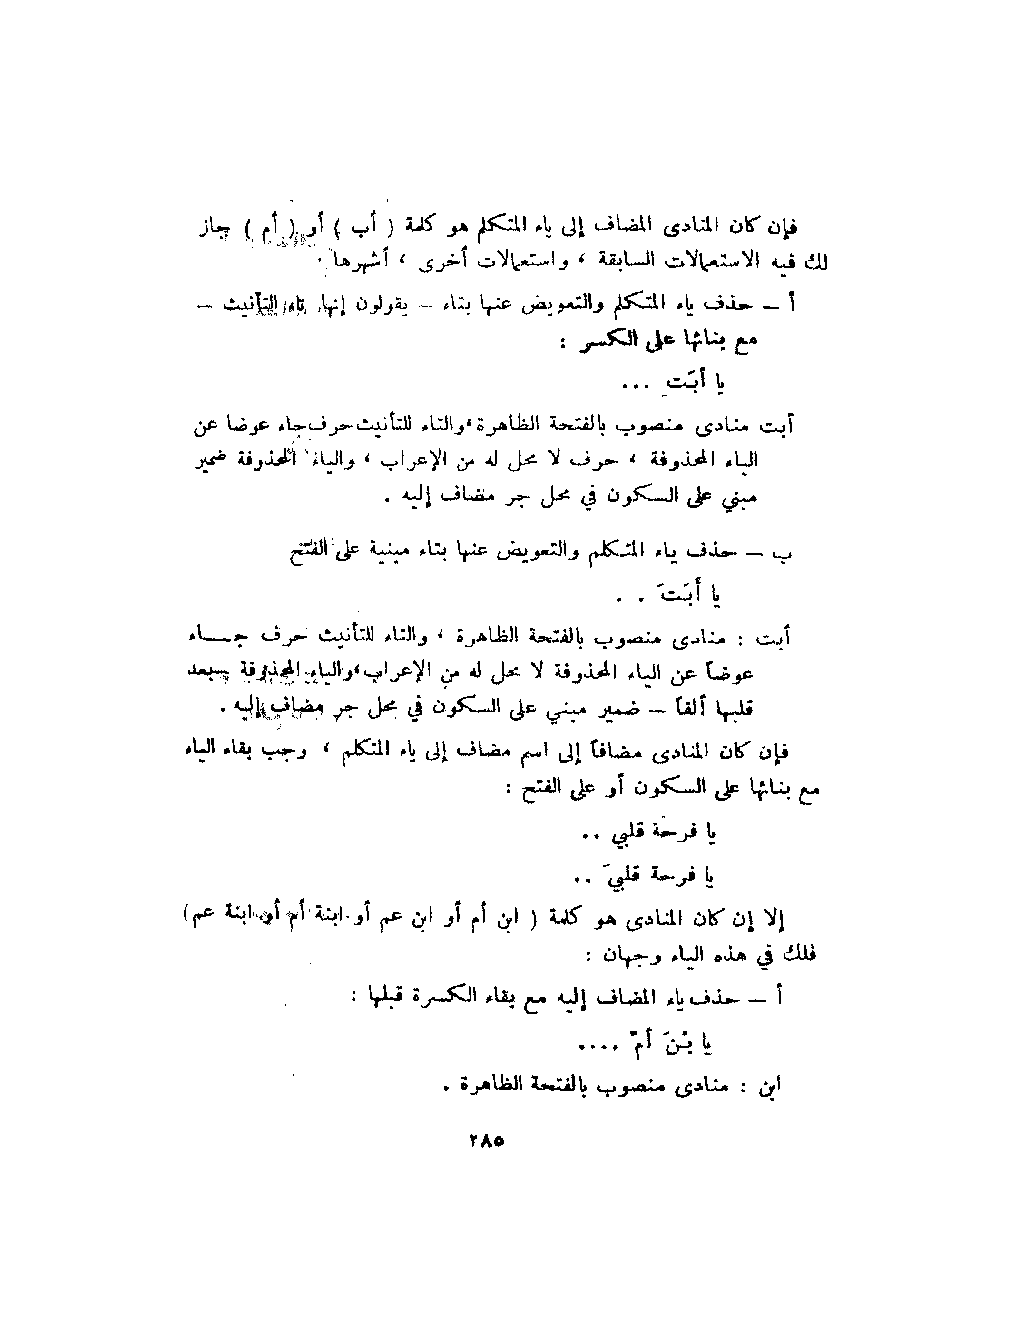 فإن كان المنادى المضاف إلى ياء المتكلم هو كلمة ( أب ) أو ( أم ) جاز
لك فيه الاستعمالات السابقة ، واستعمالات أخرى ، أشهرها :
أ – حذف ياء المتكلم والتعويض عنها بتاء – يقولون إنها تاء التأنيث –
مع بنائها على الكسر :
يا أبَتِ ...
أبت منادى منصوب بالفتحة الظاهرة ، والتاء للتأنيث حرف جاء عوضا عن
الياء المحذوفة ، حرف لا محل له من الإعراب ، والياء المحذوفة ضمير
مبني على السكون في محل جر مضاف إليه .
ب – حذف ياء المتكلم والتعويض عنها بتاء مبنية على الفتح
يا أبَتَ . .
أبت : منادى منصوب بالفتحة الظاهرة ، والتاء للتأنيث حرف جـــاء
عوضاً عن الياء المحذوفة لا محل له من الإعراب ، والياء المحذوفة بعد
قلبها ألفاً – ضمير مبني على السكون في محل جر مضاف إليه .
فإن كان المنادى مضافاً إلى اسم مضاف إلى ياء المتكلم ، وجب بقاء الياء
مع بنائها على السكون أو على الفتح :
يا فرحة قلبي ..
يا فرحة قلبيَ ..
إلا إن كان المنادى هو كلمة ( ابن أم أو ابن عم أو ابنة أم أو ابنة عم )
فلك في هذه الياء وجهان :
أ – حذف ياء المضاف إليه مع بقاء الكسرة قبلها :
يا بْنَ أمّ ....
ابن : منادى منصوب بالفتحة الظاهرة .
٢٨٥